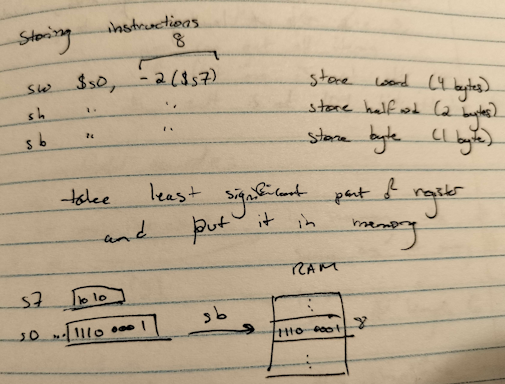 Storing instructions
8
sw $s0, -2($s7) store word (4 bytes)
sh " " store halfwd (2 bytes)
sb " " store byte (1 byte)
take least significant part of register
and put it in memory
RAM
s7 1010
s0 ...1110 0001 sb 1110 0001 8